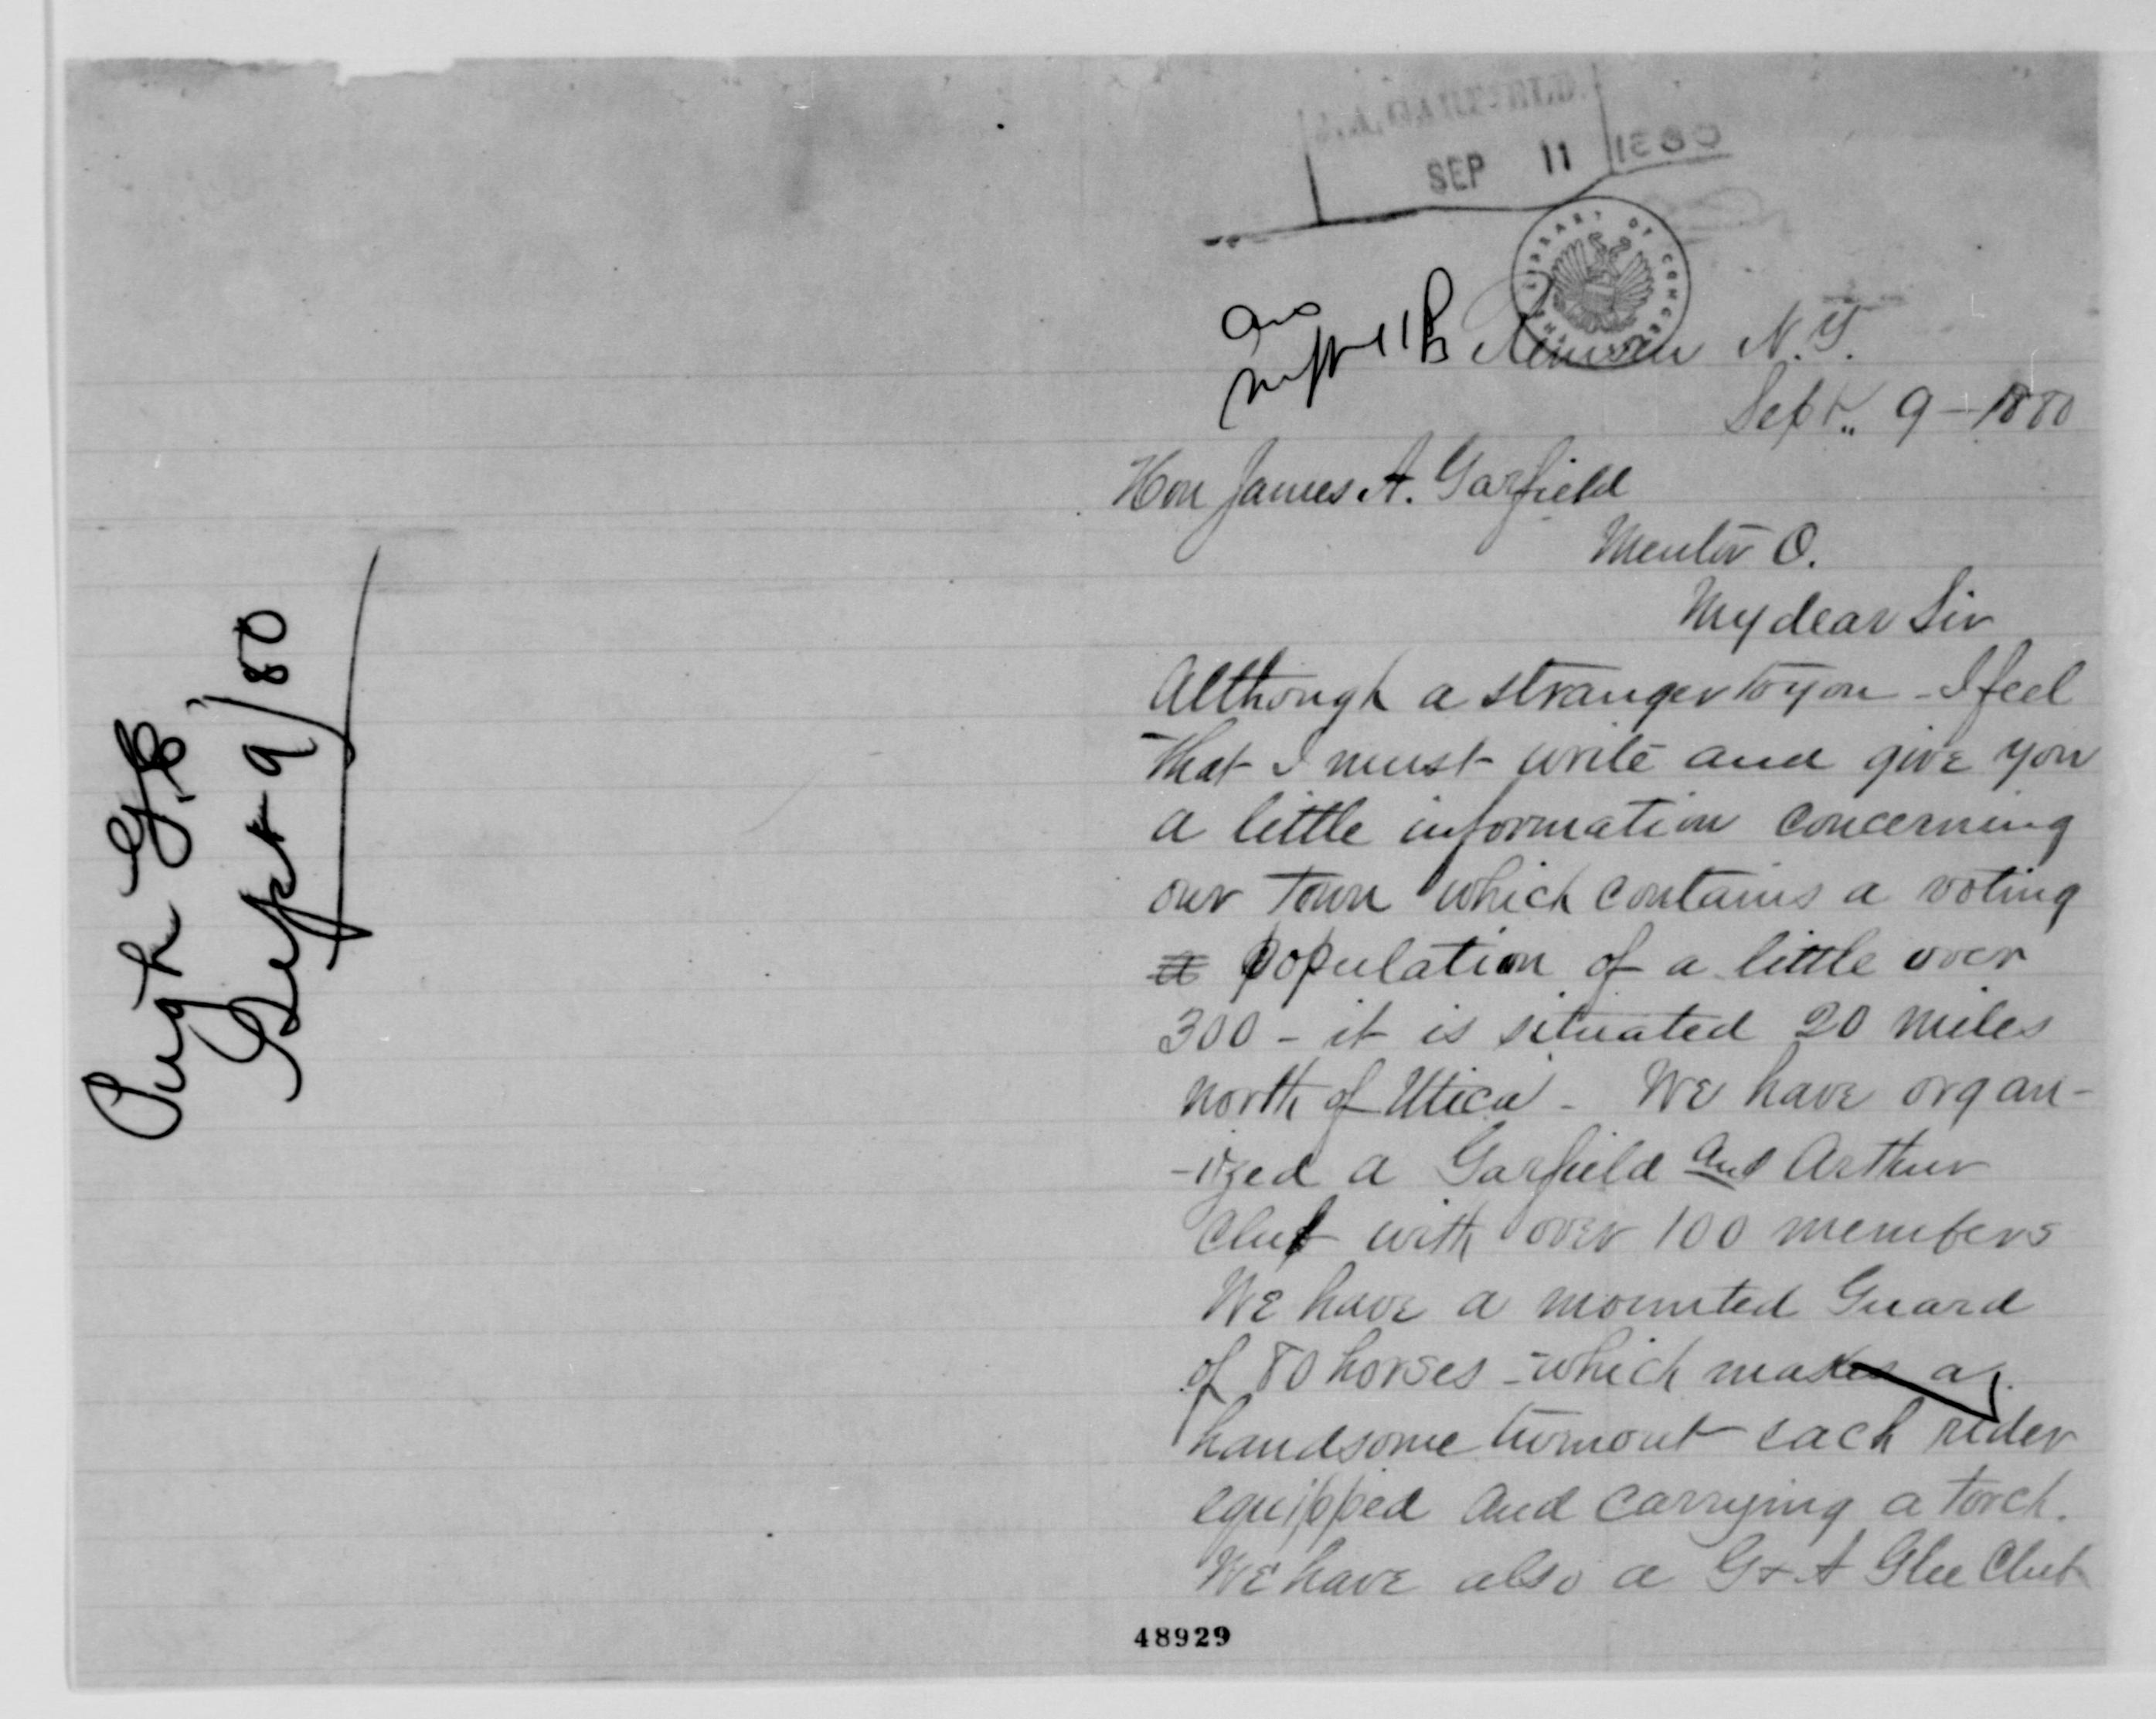 J.A. GARFIELD.
SEP 11 1880
LIBRARY OF CONGRESS
Ans
Sept 11
Remsen N.Y.
Sept. 9 - 1880
Hon James A. Garfield
Mentor O.
My dear Sir
Although a stranger to you - I feel
that I must write and give you
a little information concerning
our town which contains a voting
a population of a little over
300 - it is situated 20 miles
north of Utica - We have organ-
-ized a Garfield and Arthur
Club with over 100 members
We have a mounted Guard
of 80 horses - which makes a
handsome turnout each rider
equipped and carrying a torch.
We have also a G & A Glee Club
48929
Pugh G.E.
Sept 9/80